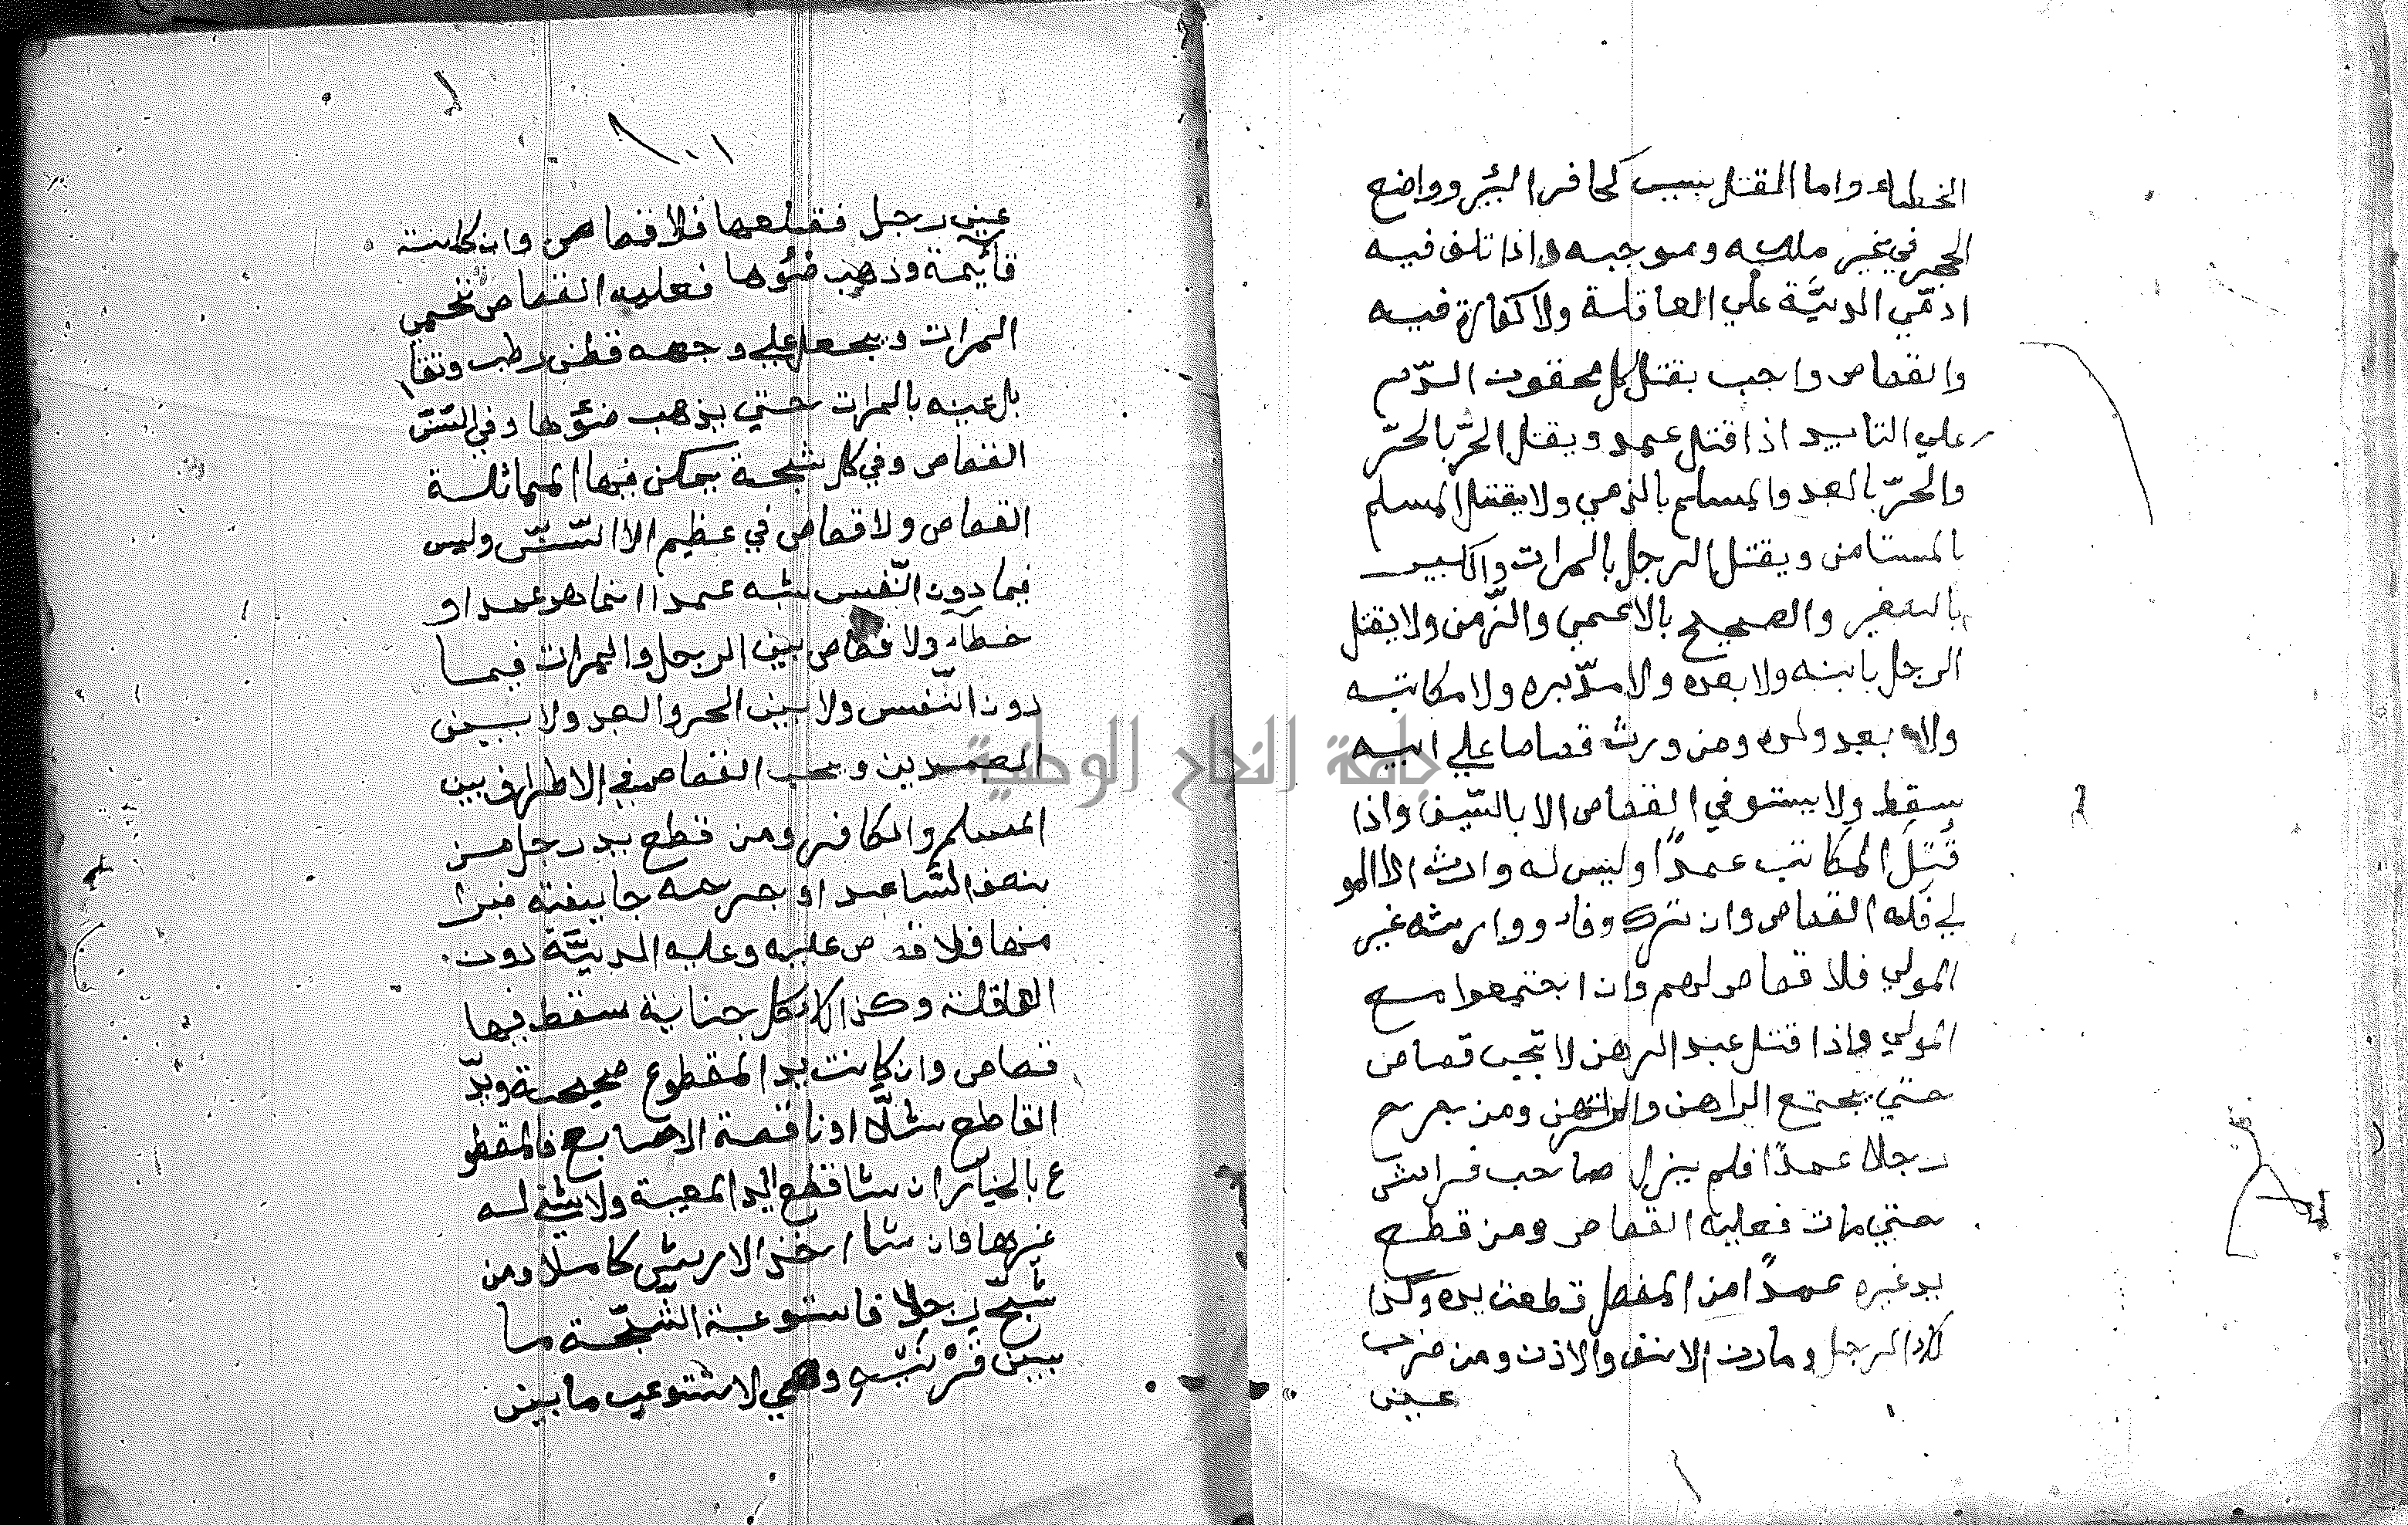 الخطاء واما القتل بسبب كحافر البئر وواضع
الحجر في غير ملكه وموجبه واذا تلف فيه
ادمّي الديَّة علي العاقلة ولا كفارة فيه
والقصاص واجب بقتل كل محقون الدّم
علي التابيد اذا قتل عمد ويقتل الحرّ بالحرّ
والحرّ بالعبد والمسلم بالذمي ولا يقتل المسلم
بالمستامن ويقتل الرجل بالمرات والكبير
بالصغير والصحيح بالاعمي والزّمن ولا يقتل
الرجل بابنه ولا بعبده والا مدّبره ولا مكاتبه
ولا بعبد ولده ومن ورث قصاصا علي ابيه
سقط ولا يستوفي القصاص الا بالسّيف واذا
قُتِلَ المكاتب عمدًا وليس له وارث الا المو
لي فله القصاص وان ترك وفاء ووارثه غير
المولي فلا قصاص لهم وان اجتمعوا مع
المولي واذا قتل عبد الرهن لا تجب قصاص
حتي يجتمع الراهن والمرتهن ومن جرح
رجلا عمدًا فلم يزل صاحب فراش
حتي مات فعليه القصاص ومن قطع
يد غيره عمدًا من المفصل قطعت يده وكذا
الرجل ومارن الانف والاذن ومن ضرب
عين
عين رجل فقلعها فلا قصاص وان كانت
قآئمة وذهب ضوُها فعليه القصاص تحمي
المرات ويجعل علي وجهه قطن رطب وتقا
بل عينه بالمرات حتي يذهب ضوُها وفي السّنّ
القصاص وفي كل شجة يمكن فيها المماثلة
القصاص ولا قصاص في عظيم الا السّنّ وليس
فيما دون النّفس شبه عمد انما هو عمد او
خطآء ولا قصاص بين الرجل والمرات فيما
دون النّفس ولا بين الحر والعبد ولا بين
العبدين ويجب القصاص في الاطراف بين
المسلم والكافر ومن قطع يد رجل من
نصف السّاعد او جرحه جايفته فبرا
منها فلا قصاص عليه وعليه الديَّة دون
العاقلة وكذالك كل جناية سقط فيها
قصاص وان كانت يد المقطوع صحيحة ويدّ
القاطع شلّا او ناقصة الاصابع فالمقطو
ع بالخيار ان شا قطع اليد المعيبة ولا شئ له
غيرها وان شا اخذ الارش كاملا ومن
شجّ رجلا فاستوعبة الشّجّة ما
بين قرْنيْه وهي لا تستوعب ما بين
جامعة النجاح الوطنية